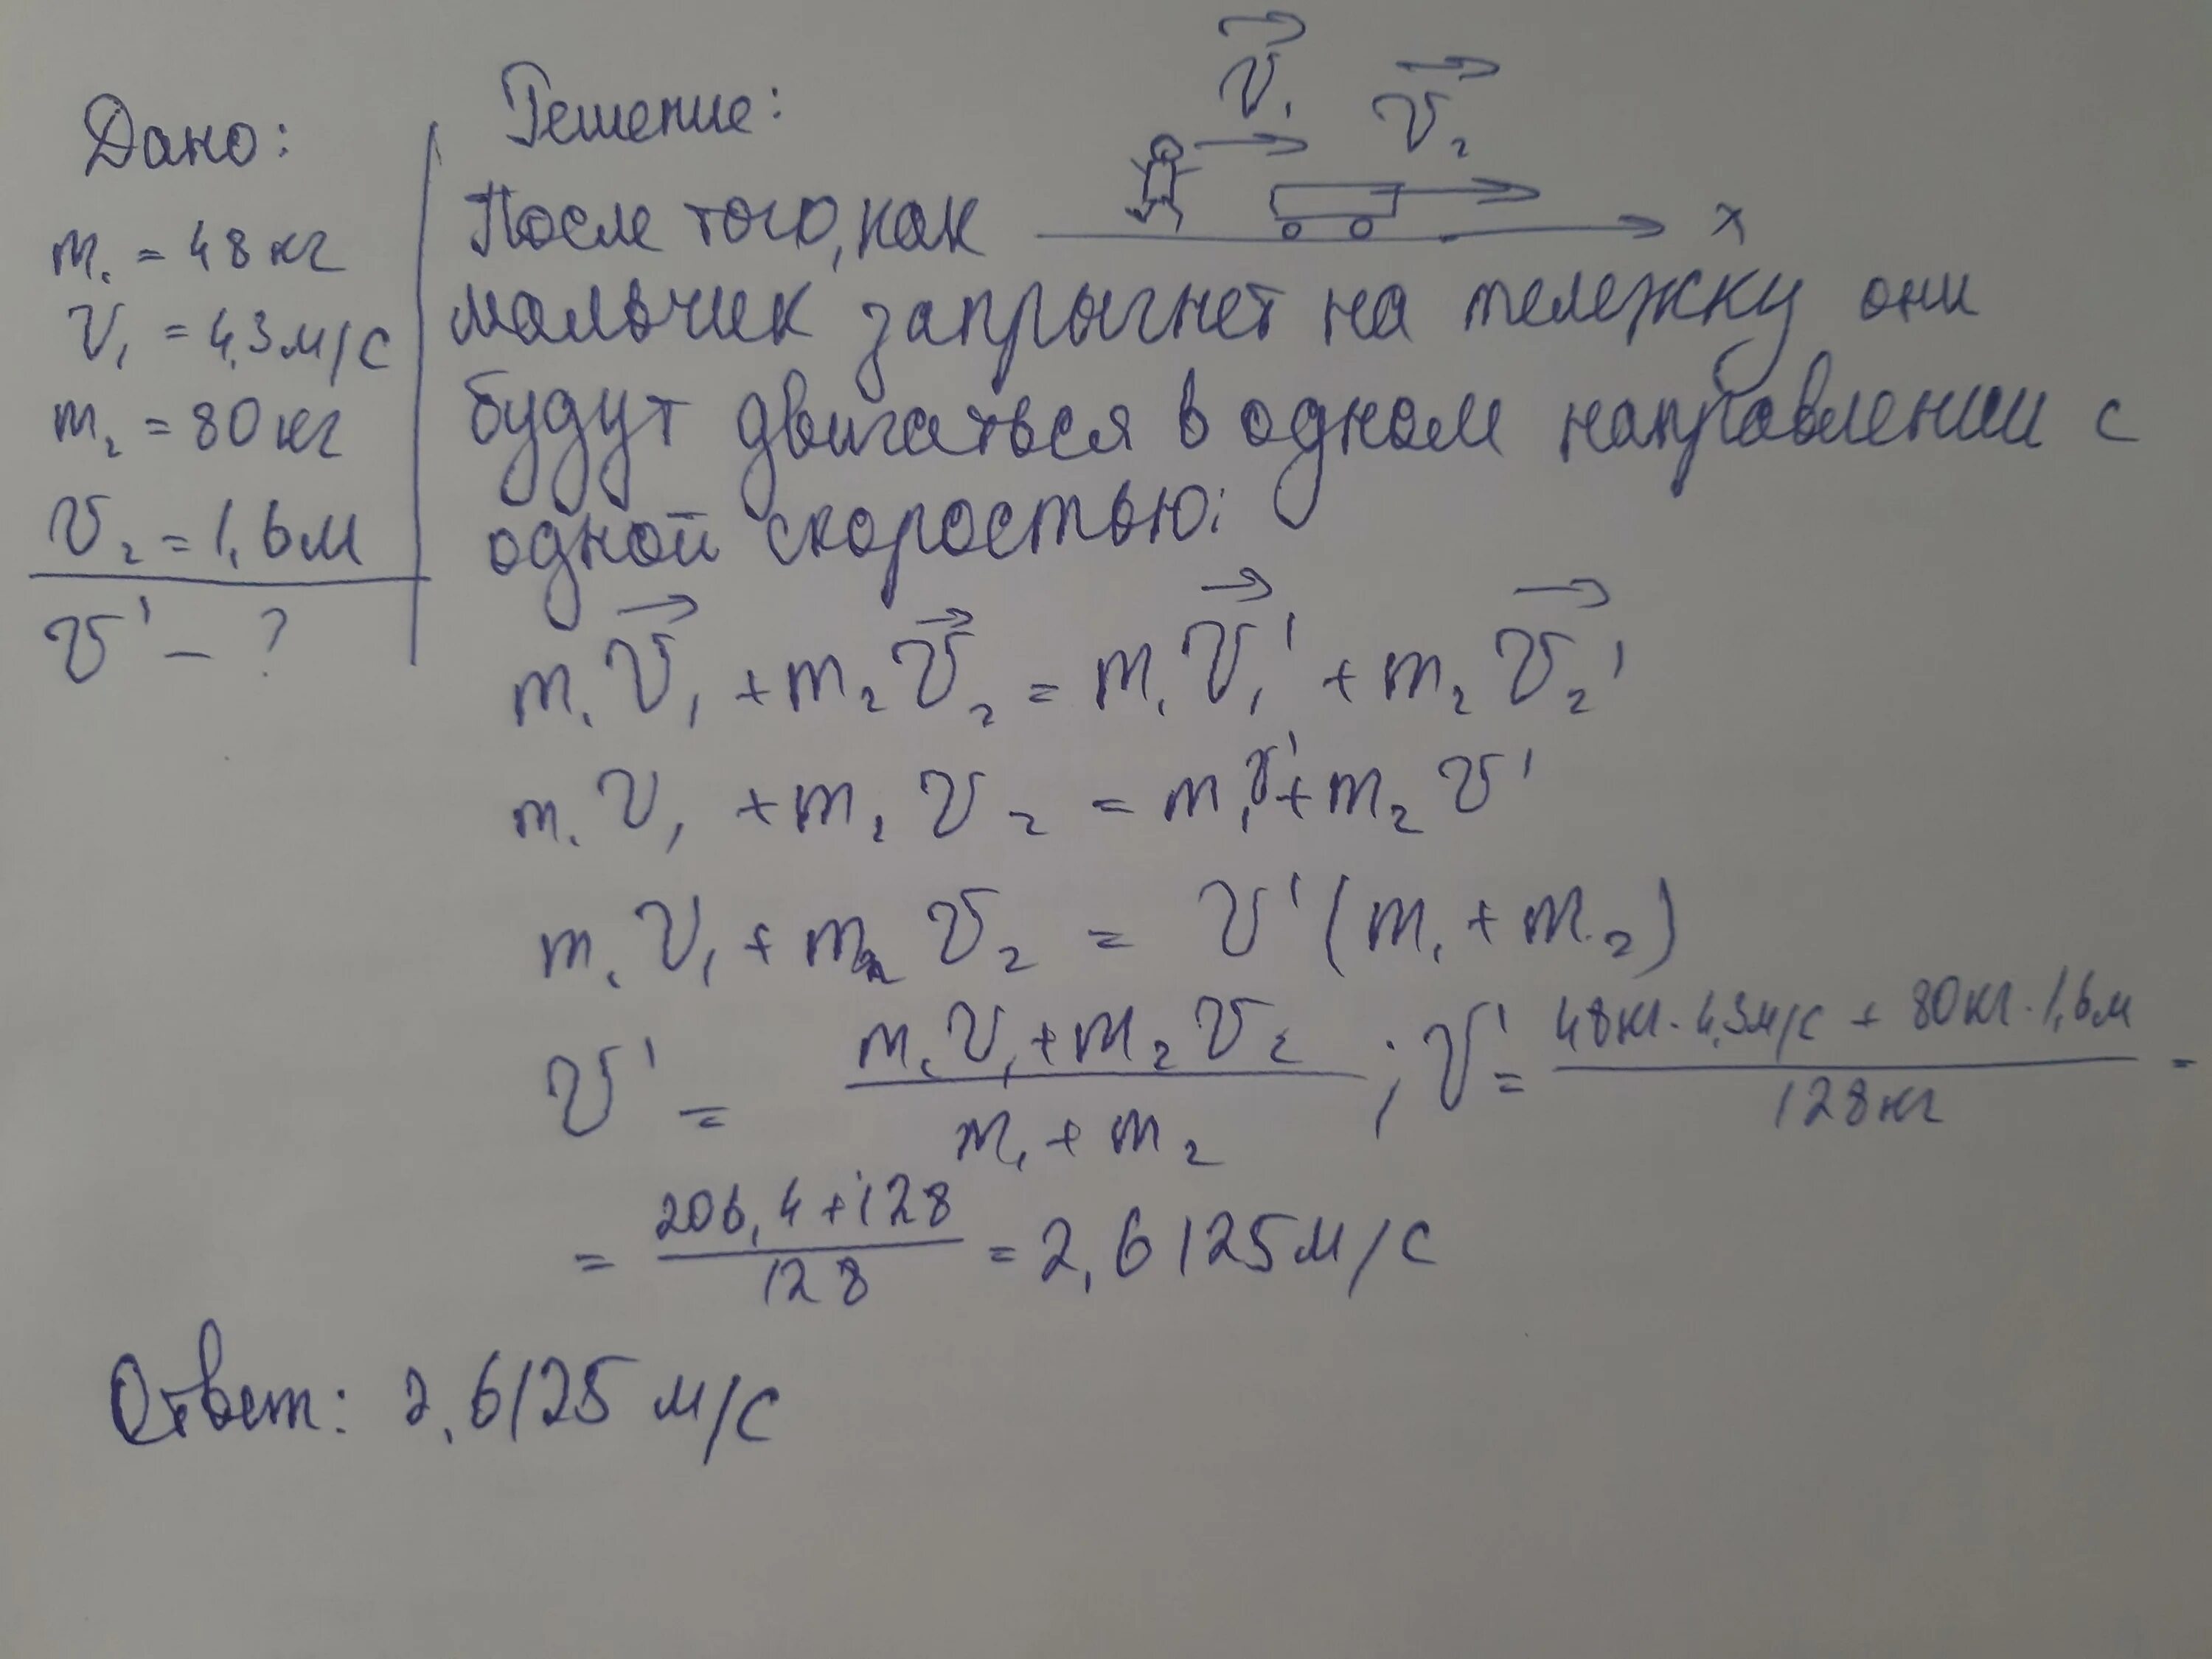 Дано:
m₁ = 48 кг
v₁ = 4,3 м/с
m₂ = 80 кг
v₂ = 1,6 м
v' – ?
Решение:
v⃗₁
v⃗₂
x
После того, как
мальчик запрыгнет на тележку они
будут двигаться в одном направлении с
одной скоростью:
m₁v⃗₁ + m₂v⃗₂ = m₁v⃗₁' + m₂v⃗₂'
m₁v₁ + m₂v₂ = m₁v' + m₂v'
m₁v₁ + m₂v₂ = v'(m₁ + m₂)
v' = (m₁v₁ + m₂v₂) / (m₁ + m₂) ; v' = (48кг · 4,3м/с + 80кг · 1,6м) / 128кг =
= (206,4 + 128) / 128 = 2,6125 м/с
Ответ: 2,6125 м/с